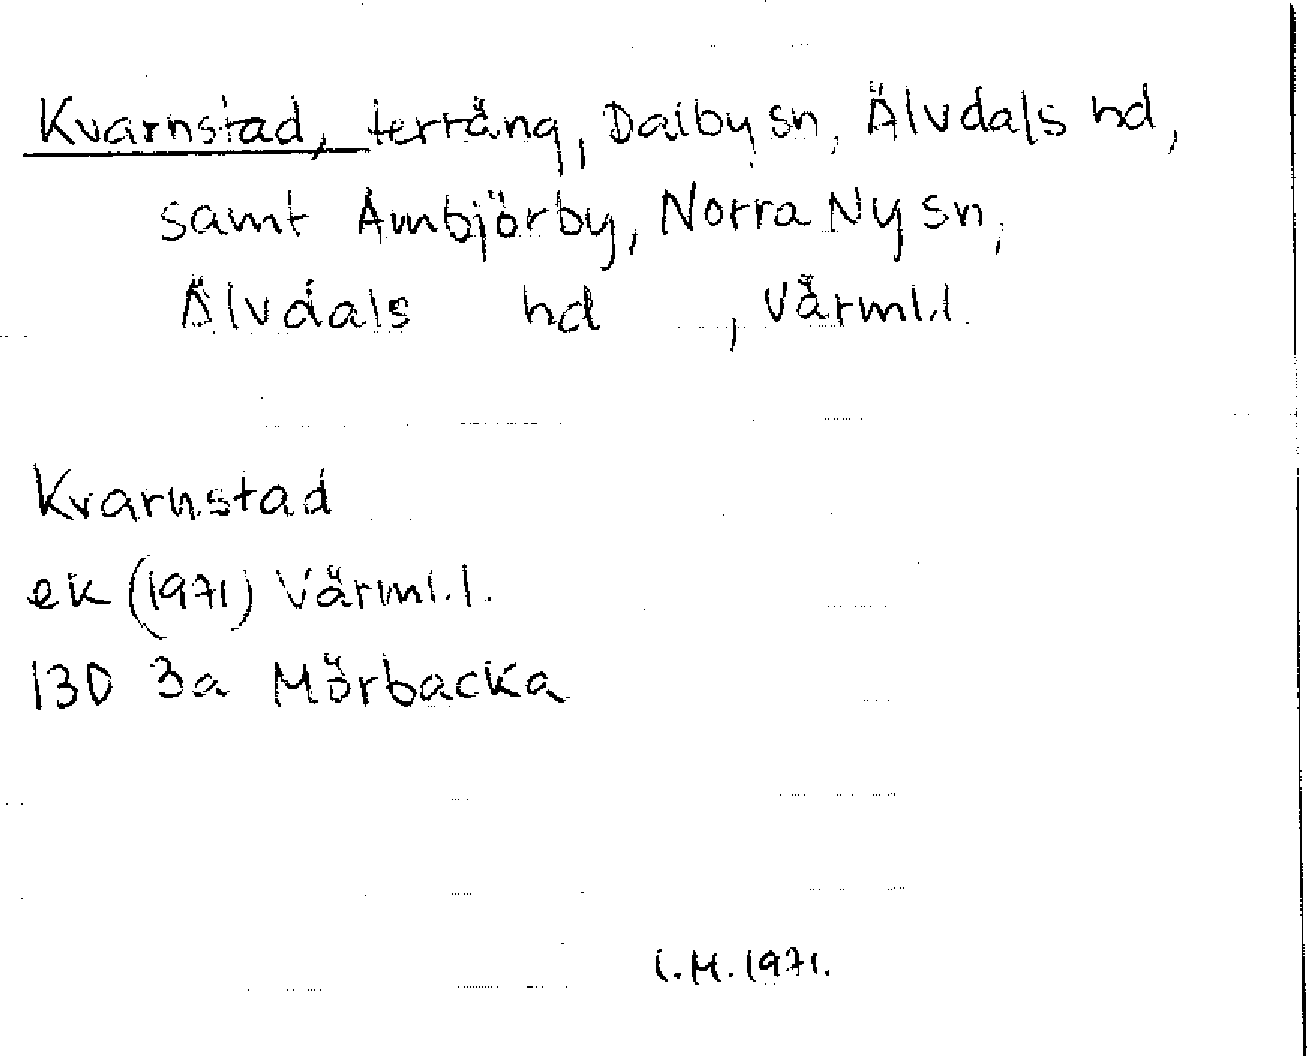 Kvarnstad, terräng, Dalby sn, Älvdals hd,
samt Ambjörby, Norra Ny sn,
Älvdals hd , Värml.l.
Kvarnstad
ek (1971) Värml.l.
13D 3a Mörbacka
I.M. 1971.